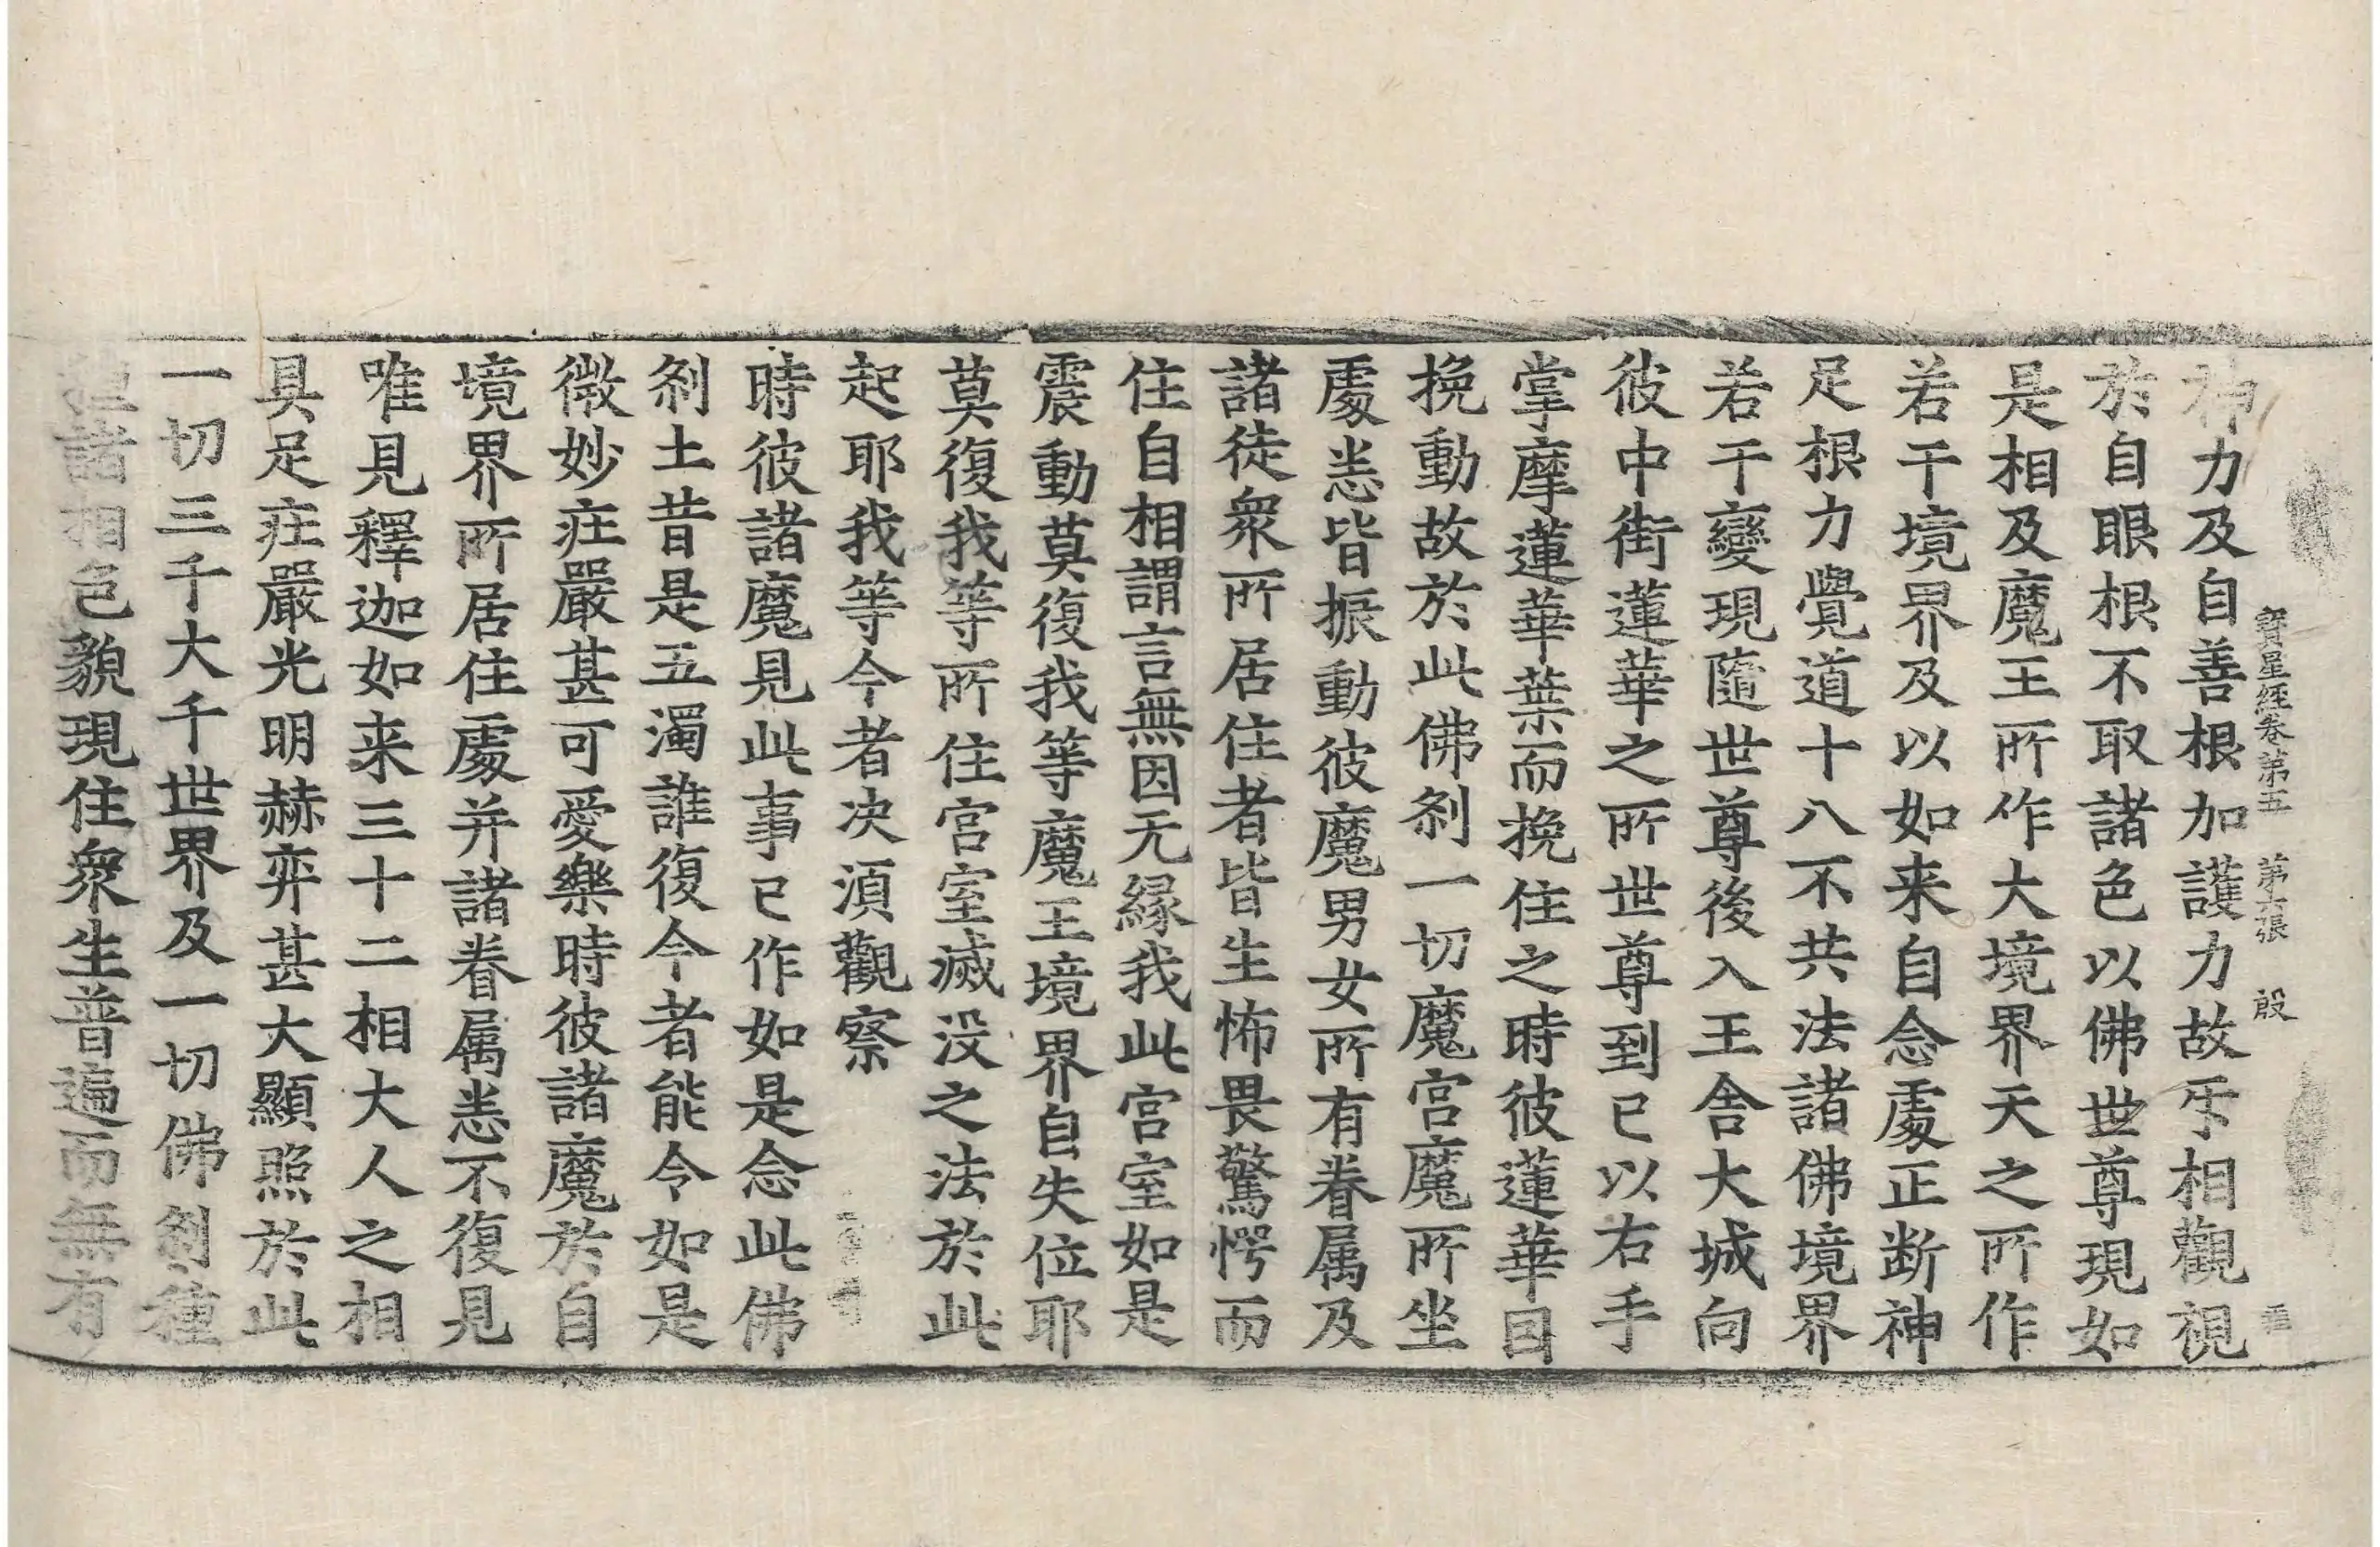 寶星經卷第五 第六張 殷
神力及自善根加護力故氐相觀視
於自眼根不取諸色以佛世尊現如
是相及魔王所作大境界天之所作
若干境界及以如来自念處正断神
足根力覺道十八不共法諸佛境界
若干變現隨世尊後入王舍大城向
彼中街蓮華之所世尊到已以右手
掌摩蓮華葉而挽住之時彼蓮華因
挽動故於此佛刹一切魔宮魔所坐
處恙皆振動彼魔男女所有眷属及
諸徒衆所居住者皆生怖畏驚愕而
住自相謂言無因无縁我此宮室如是
震動莫復我等魔王境界自失位耶
莫復我等所住宮室滅没之法於此
起耶我等今者决湏觀察
時彼諸魔見此事已作如是念此佛
刹土昔是五濁誰復今者能令如是
微妙疘嚴甚可愛樂時彼諸魔於自
境界所居住處并諸眷属恙不復見
唯見釋迦如来三十二相大人之相
具足疘嚴光明赫弈甚大顯照於此
一切三千大千世界及一切佛刹種
種諸相色貌現住衆生普遍而無有